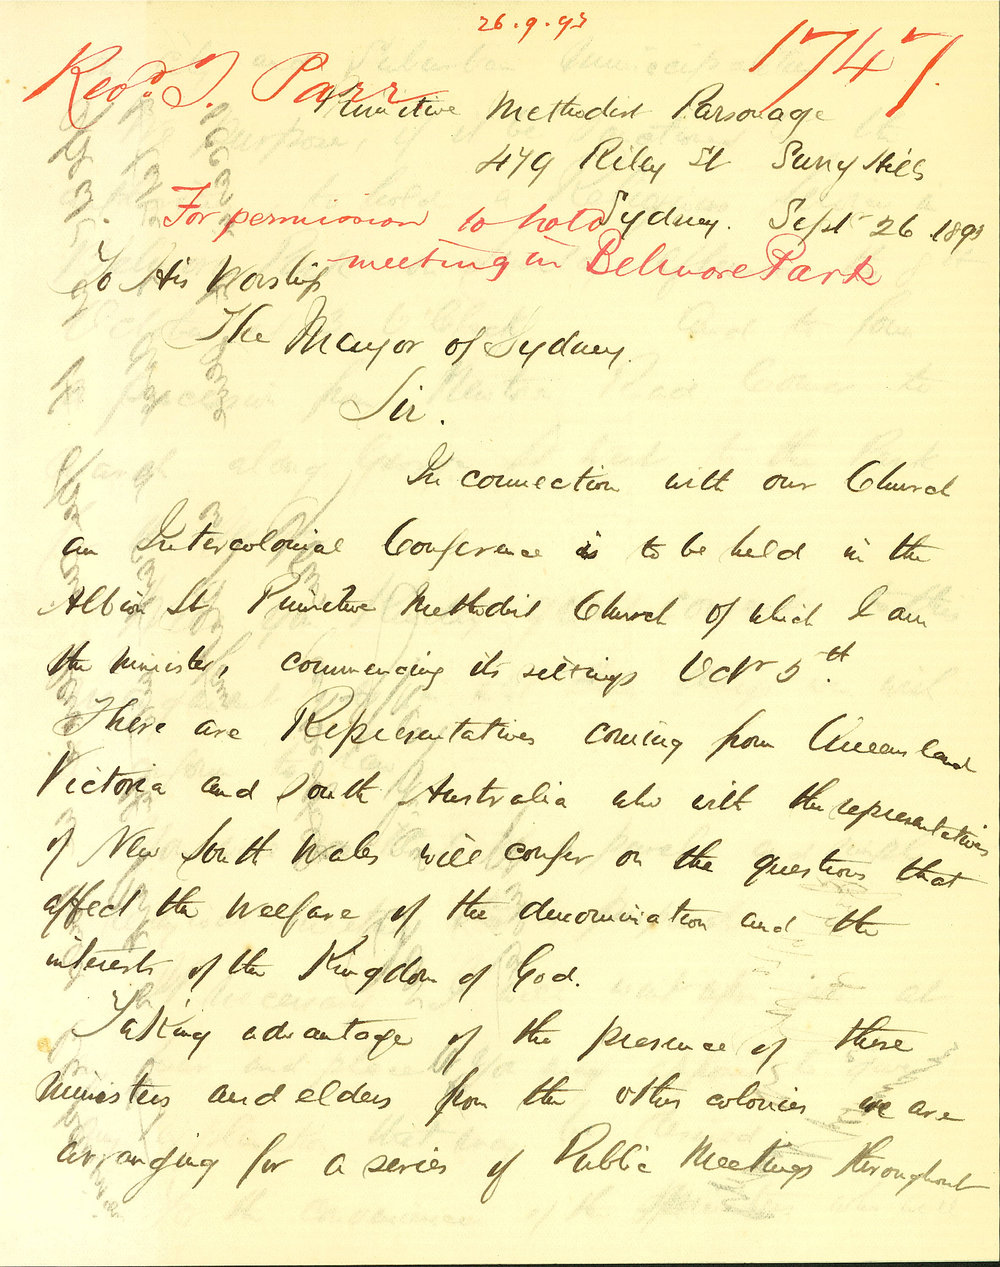 26.9.93
1747.
Revd. J. Parr
Primitive Methodist Parsonage
479 Riley St Surry Hills
Sydney. Sept 26 1893
For permission to hold
meeting in Belmore Park
To His Worship
The Mayor of Sydney.
Sir.
In connection with our Church
an Intercolonial Conference is to be held in the
Albion St Primitive Methodist Church of which I am
the minister, commencing its sittings Octr 5th.
There are Representatives coming from Queensland
Victoria and South Australia who with the representatives
of New South Wales will confer on the questions that
affect the welfare of the denomination and the
interests of the Kingdom of God.
Taking advantage of the presence of these
ministers and elders from the other colonies we are
arranging for a series of Public Meetings throughout